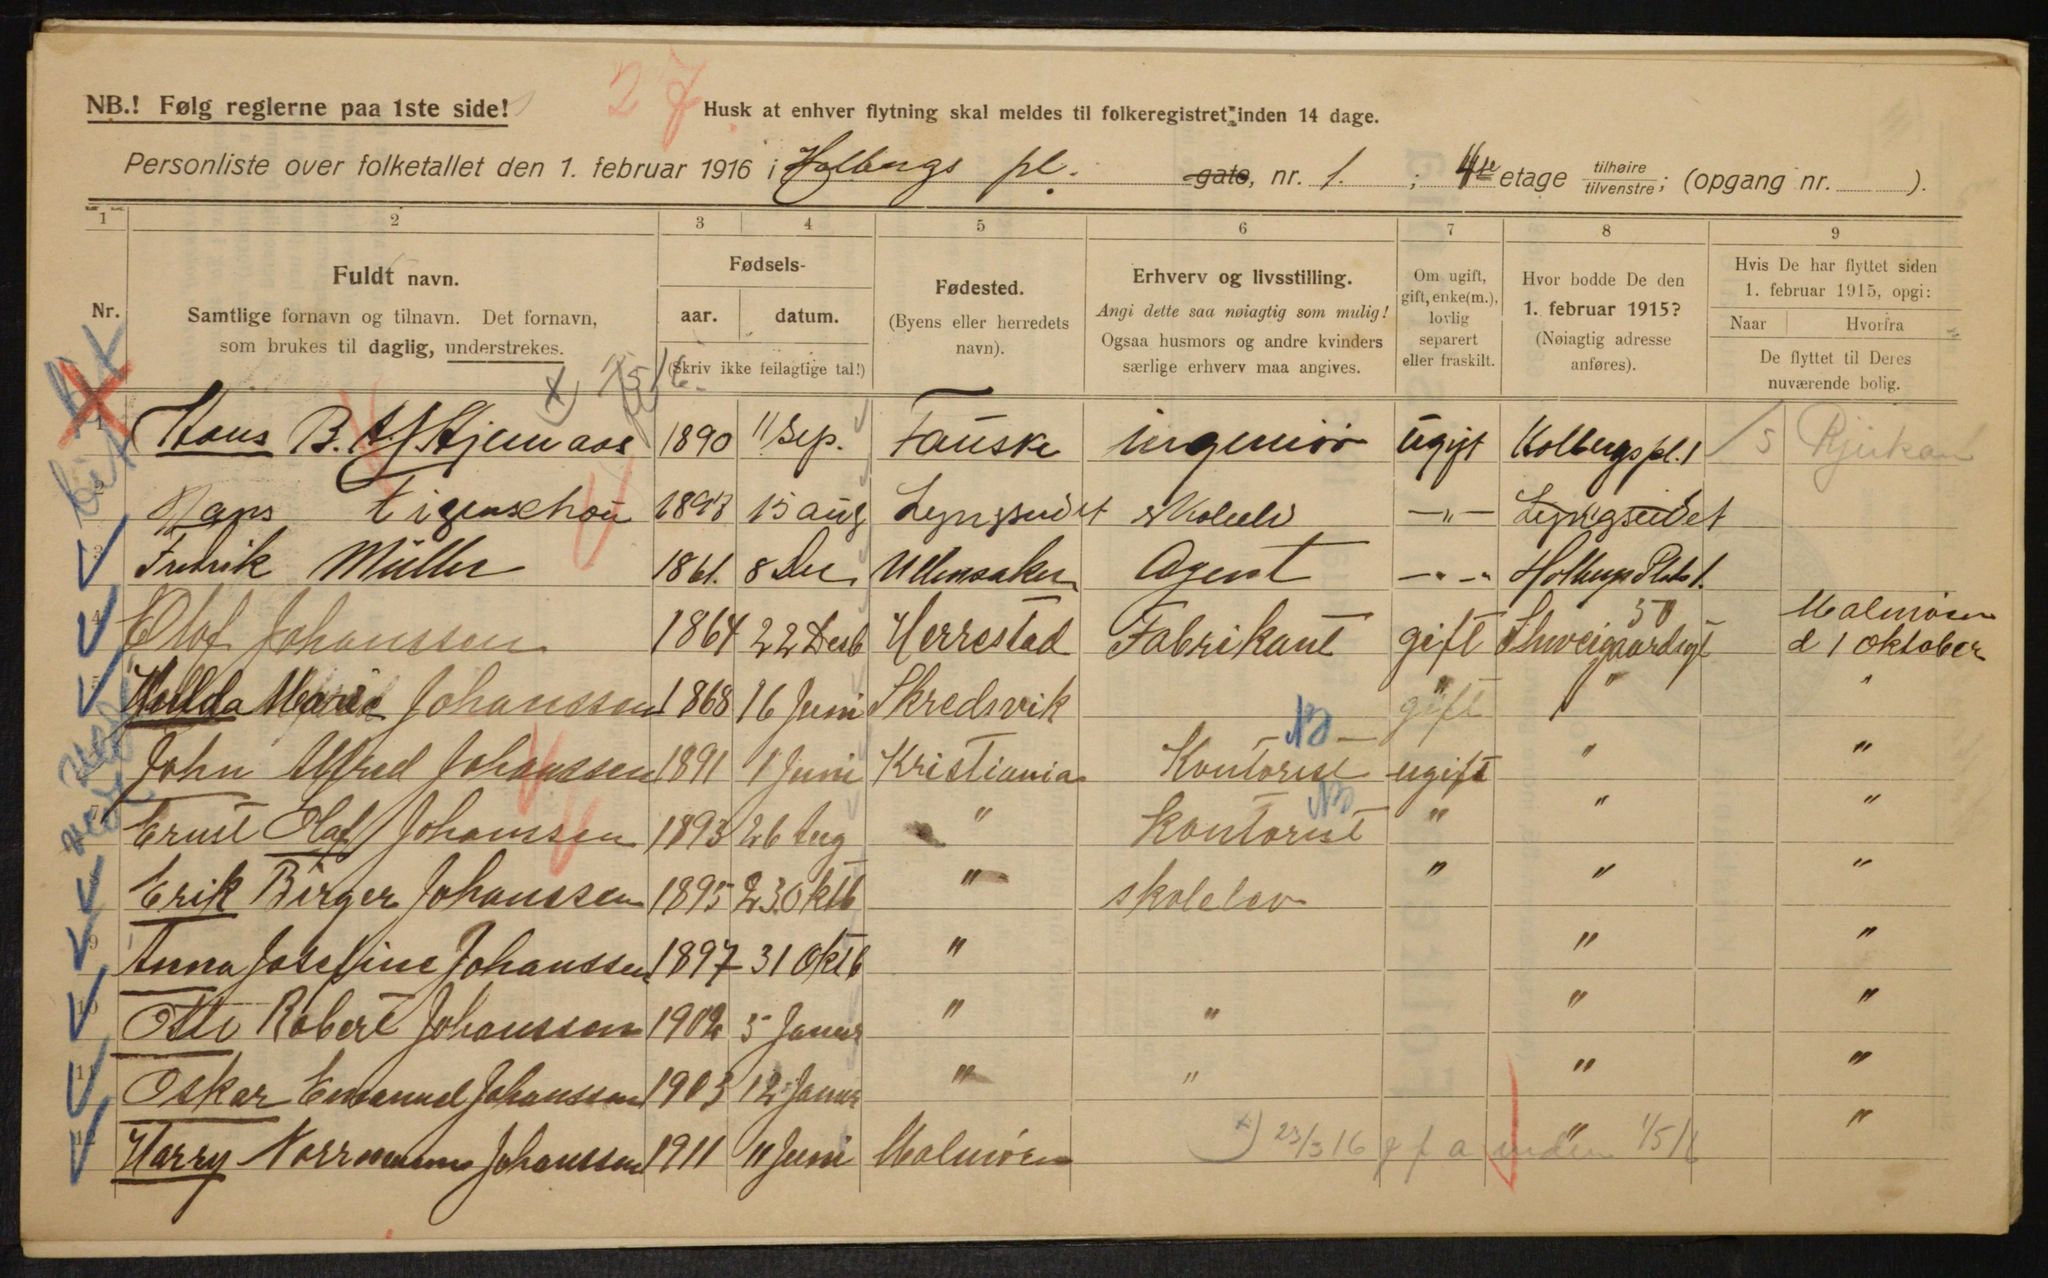 27
NB.! Følg reglerne paa 1ste side!
Husk at enhver flytning skal meldes til folkeregistret inden 14 dage.
Personliste over folketallet den 1. februar 1916 i Holbergs pl. gate, nr. 1. ; 4de etage tilhøire tilvenstre; (opgang nr. ).
1 2 3 4 5 6 7 8 9
Nr.
Fuldt navn.
Samtlige fornavn og tilnavn. Det fornavn,
som brukes til daglig, understrekes.
Fødsels-
aar. datum.
(Skriv ikke feilagtige tal!)
Fødested.
(Byens eller herredets
navn).
Erhverv og livsstilling.
Angi dette saa nøiagtig som mulig!
Ogsaa husmors og andre kvinders
særlige erhverv maa angives.
Om ugift,
gift, enke(m.),
lovlig
separert
eller fraskilt.
Hvor bodde De den
1. februar 1915?
(Nøiagtig adresse
anføres).
Hvis De har flyttet siden
1. februar 1915, opgi:
Naar Hvorfra
De flyttet til Deres
nuværende bolig.
1 Hans B. 1890 11 Sep. Fauske ingeniør ugift Holbergs pl. 1 Rjukan
2 Hans Figenschou 15 aug Lyngseidet skoleelev —"— Lyngseidet
3 Fredrik Müller 1861. 8 Dec Ullensaker Agent —"— Holbergs Plads 1.
4 Olof Johanssen 1864 22 Desb Herrestad Fabrikant gift Schweigaardsgt 50 Malmøen d 1 Oktober
5 Hullda Marie Johanssen 1868 16 Juni Skredsvik gift " "
6 John Alfred Johanssen 1891 1 Juni Kristiania Kontorist ugift " "
7 Ernst Olaf Johanssen 1893 26 Aug " Kontorist " " "
8 Erik Birger Johanssen 1895 23 Oktb " skolelev " " "
9 Anna Josefine Johanssen 1897 31 Oktb " " "
10 Otto Robert Johanssen 1902 5 Januar " " " "
11 Oskar Emanuel Johanssen 1903 12 Januar " " " "
12 Harry Norrmann Johanssen 1911 11 Juni Malmøen " "
x) 23/3 16 inden 1/5 16